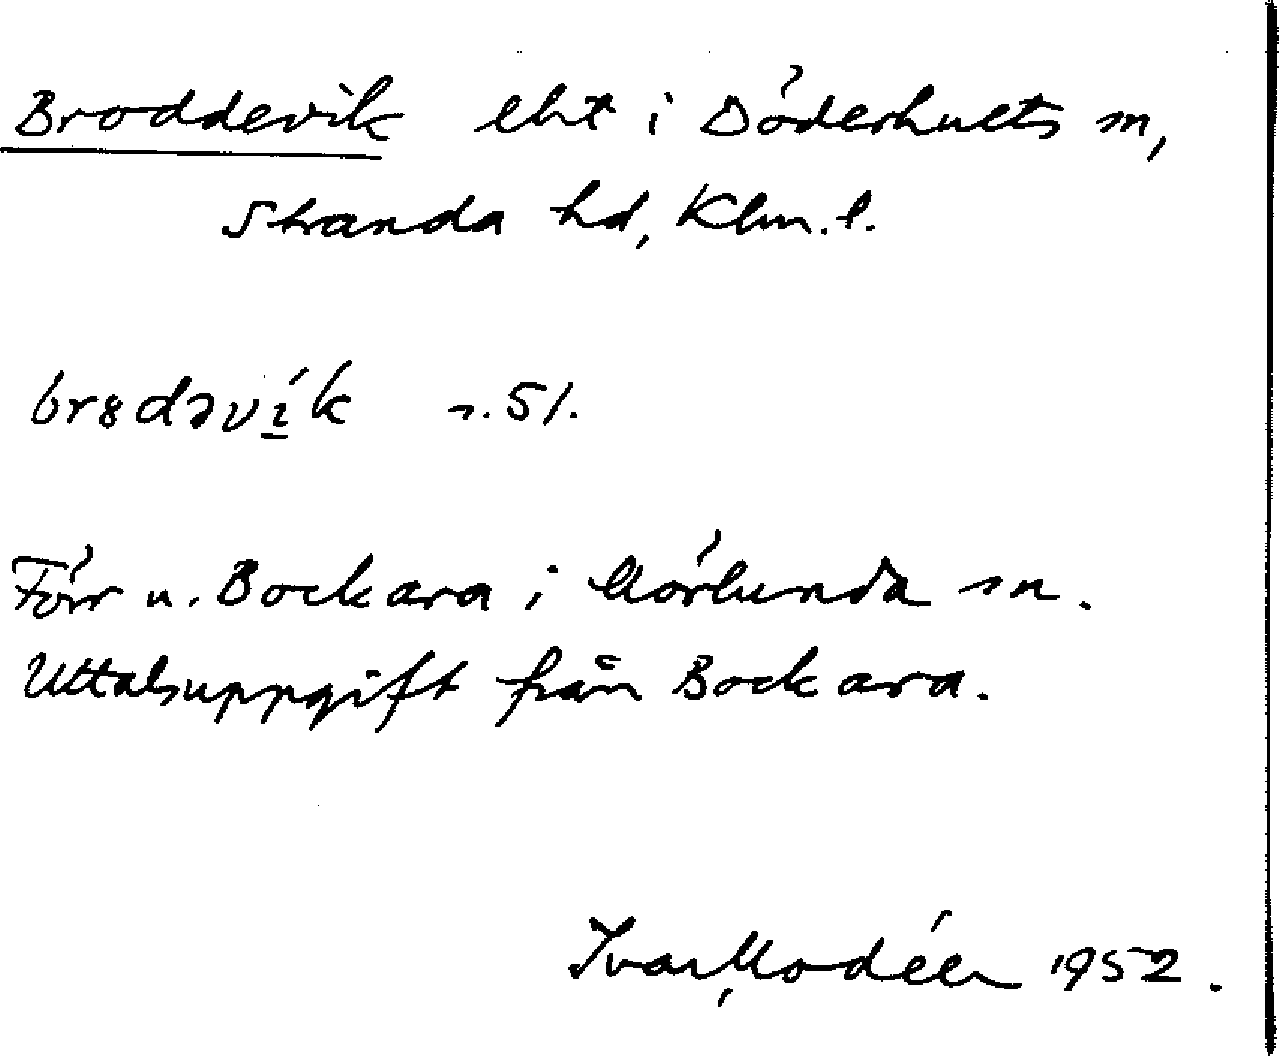 Broddevik lht i Döderhults sn,
Stranda hd, Klm. l.
br8dəvík s. 51.
Förr u. Bockara i Mörlunda sn.
Uttalsuppgift från Bockara.
Ivar Modéer 1952.